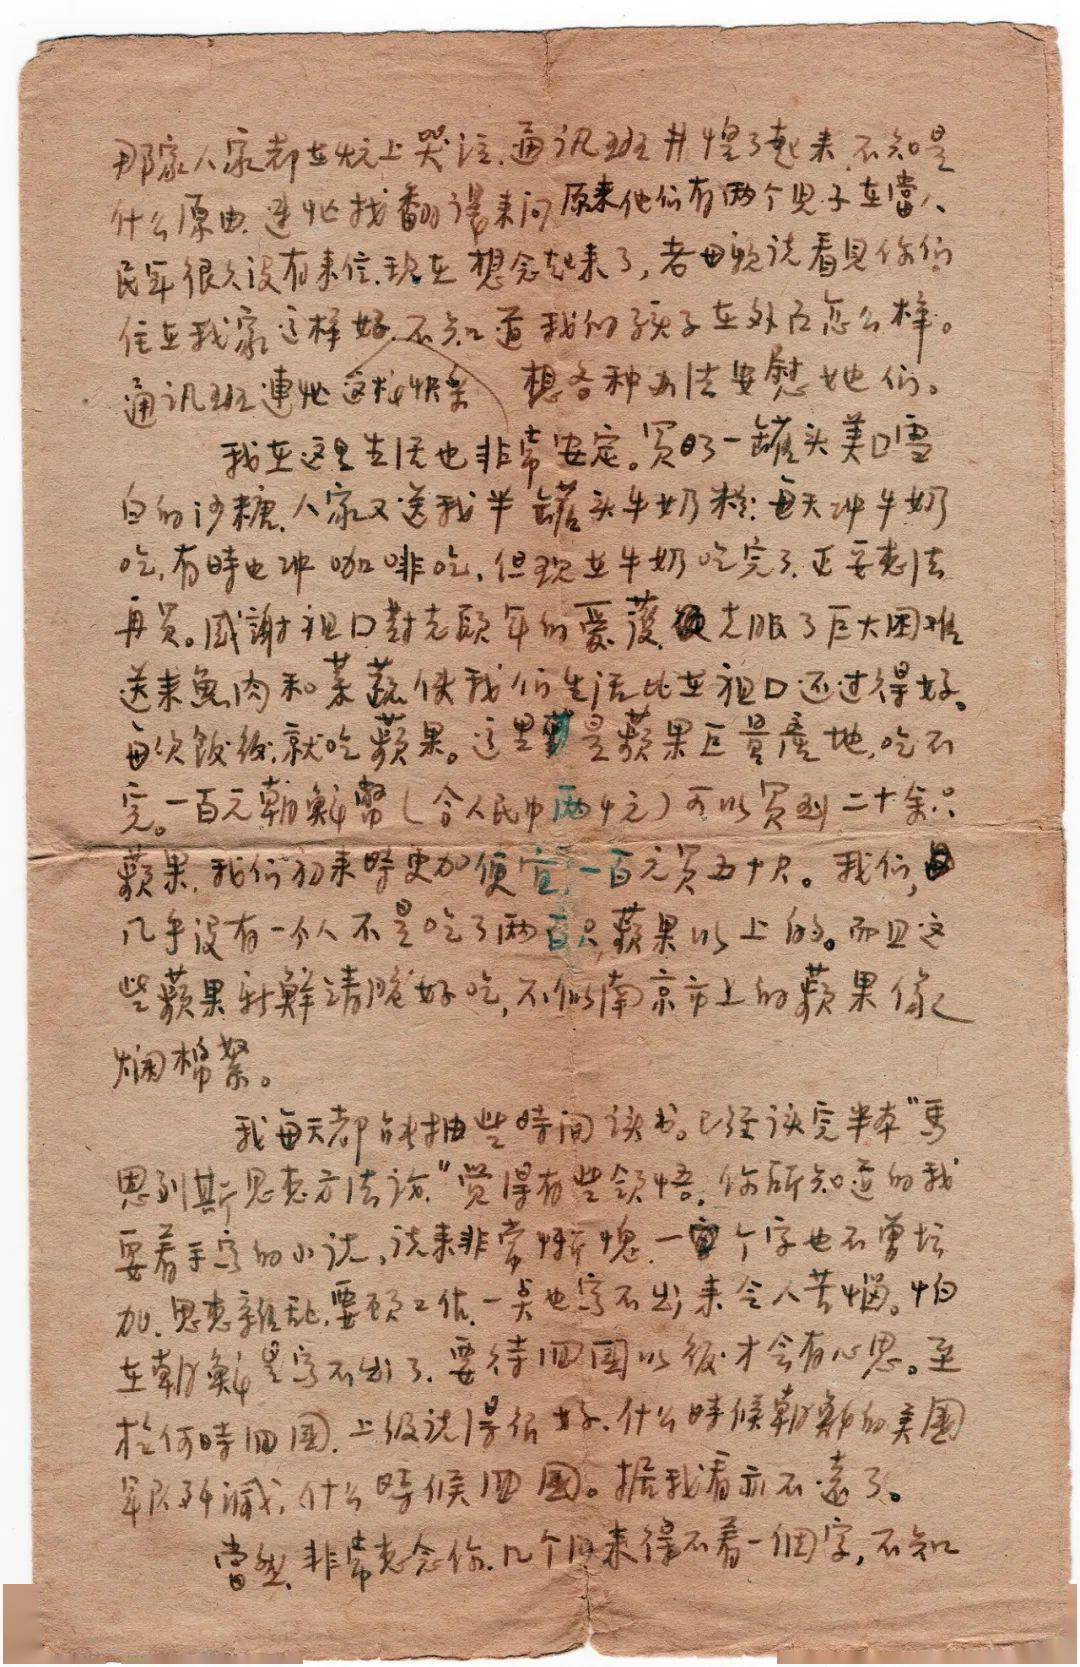 那家人家都在炕上哭泣.通讯班并惶了起来.不知是
什么原由.连忙找翻译来问.原来他们有两个兒子在當人
民军很久没有来信.现在想念起来了,老母親说看見你们
住在我家这样好.不知道我们孩子在外反怎么样。
通讯班連忙这找快乐 想各种办法安慰她们。
我在这里生活也非常安定。買了一罐头美口雪
白的沙糖.人家又送我半罐头牛奶粉.每天冲牛奶
吃,有時也冲咖啡吃,但现在牛奶吃完了.正要想法
再買。感謝祖口對志願军的愛護.克服了巨大困难
送来魚肉和菜蔬使我们生活比在祖口还过得好。
每次饭後.就吃蘋果。这里是蘋果巨量產地.吃不
完。一百元朝鮮幣(合人民巾两千元)可以買到二十余只
蘋果.我们初来時更加便宜,一百元買五十只。我们,
几乎没有一个人不是吃了两百只蘋果以上的。而且这
些蘋果新鮮清脆好吃,不似南京市上的蘋果像
烂棉絮。
我每天都能抽些時间读书。已经读完半本"馬
恩列斯思想方法论."觉得有些领悟.你所知道的我
要着手写的小说,说来非常慚愧.一个字也不曾增
加.思想雜乱.要顾工作.一点也写不出来令人苦惱。怕
在朝鮮是写不出了.要待囬國以後才会有心思。至
於何時囬國.上级说得很好.什么時候朝鮮的美國
军队歼滅,什么時候囬國。据我看亦不遠了。
當然.非常想念你.几个月来得不着一個字,不知